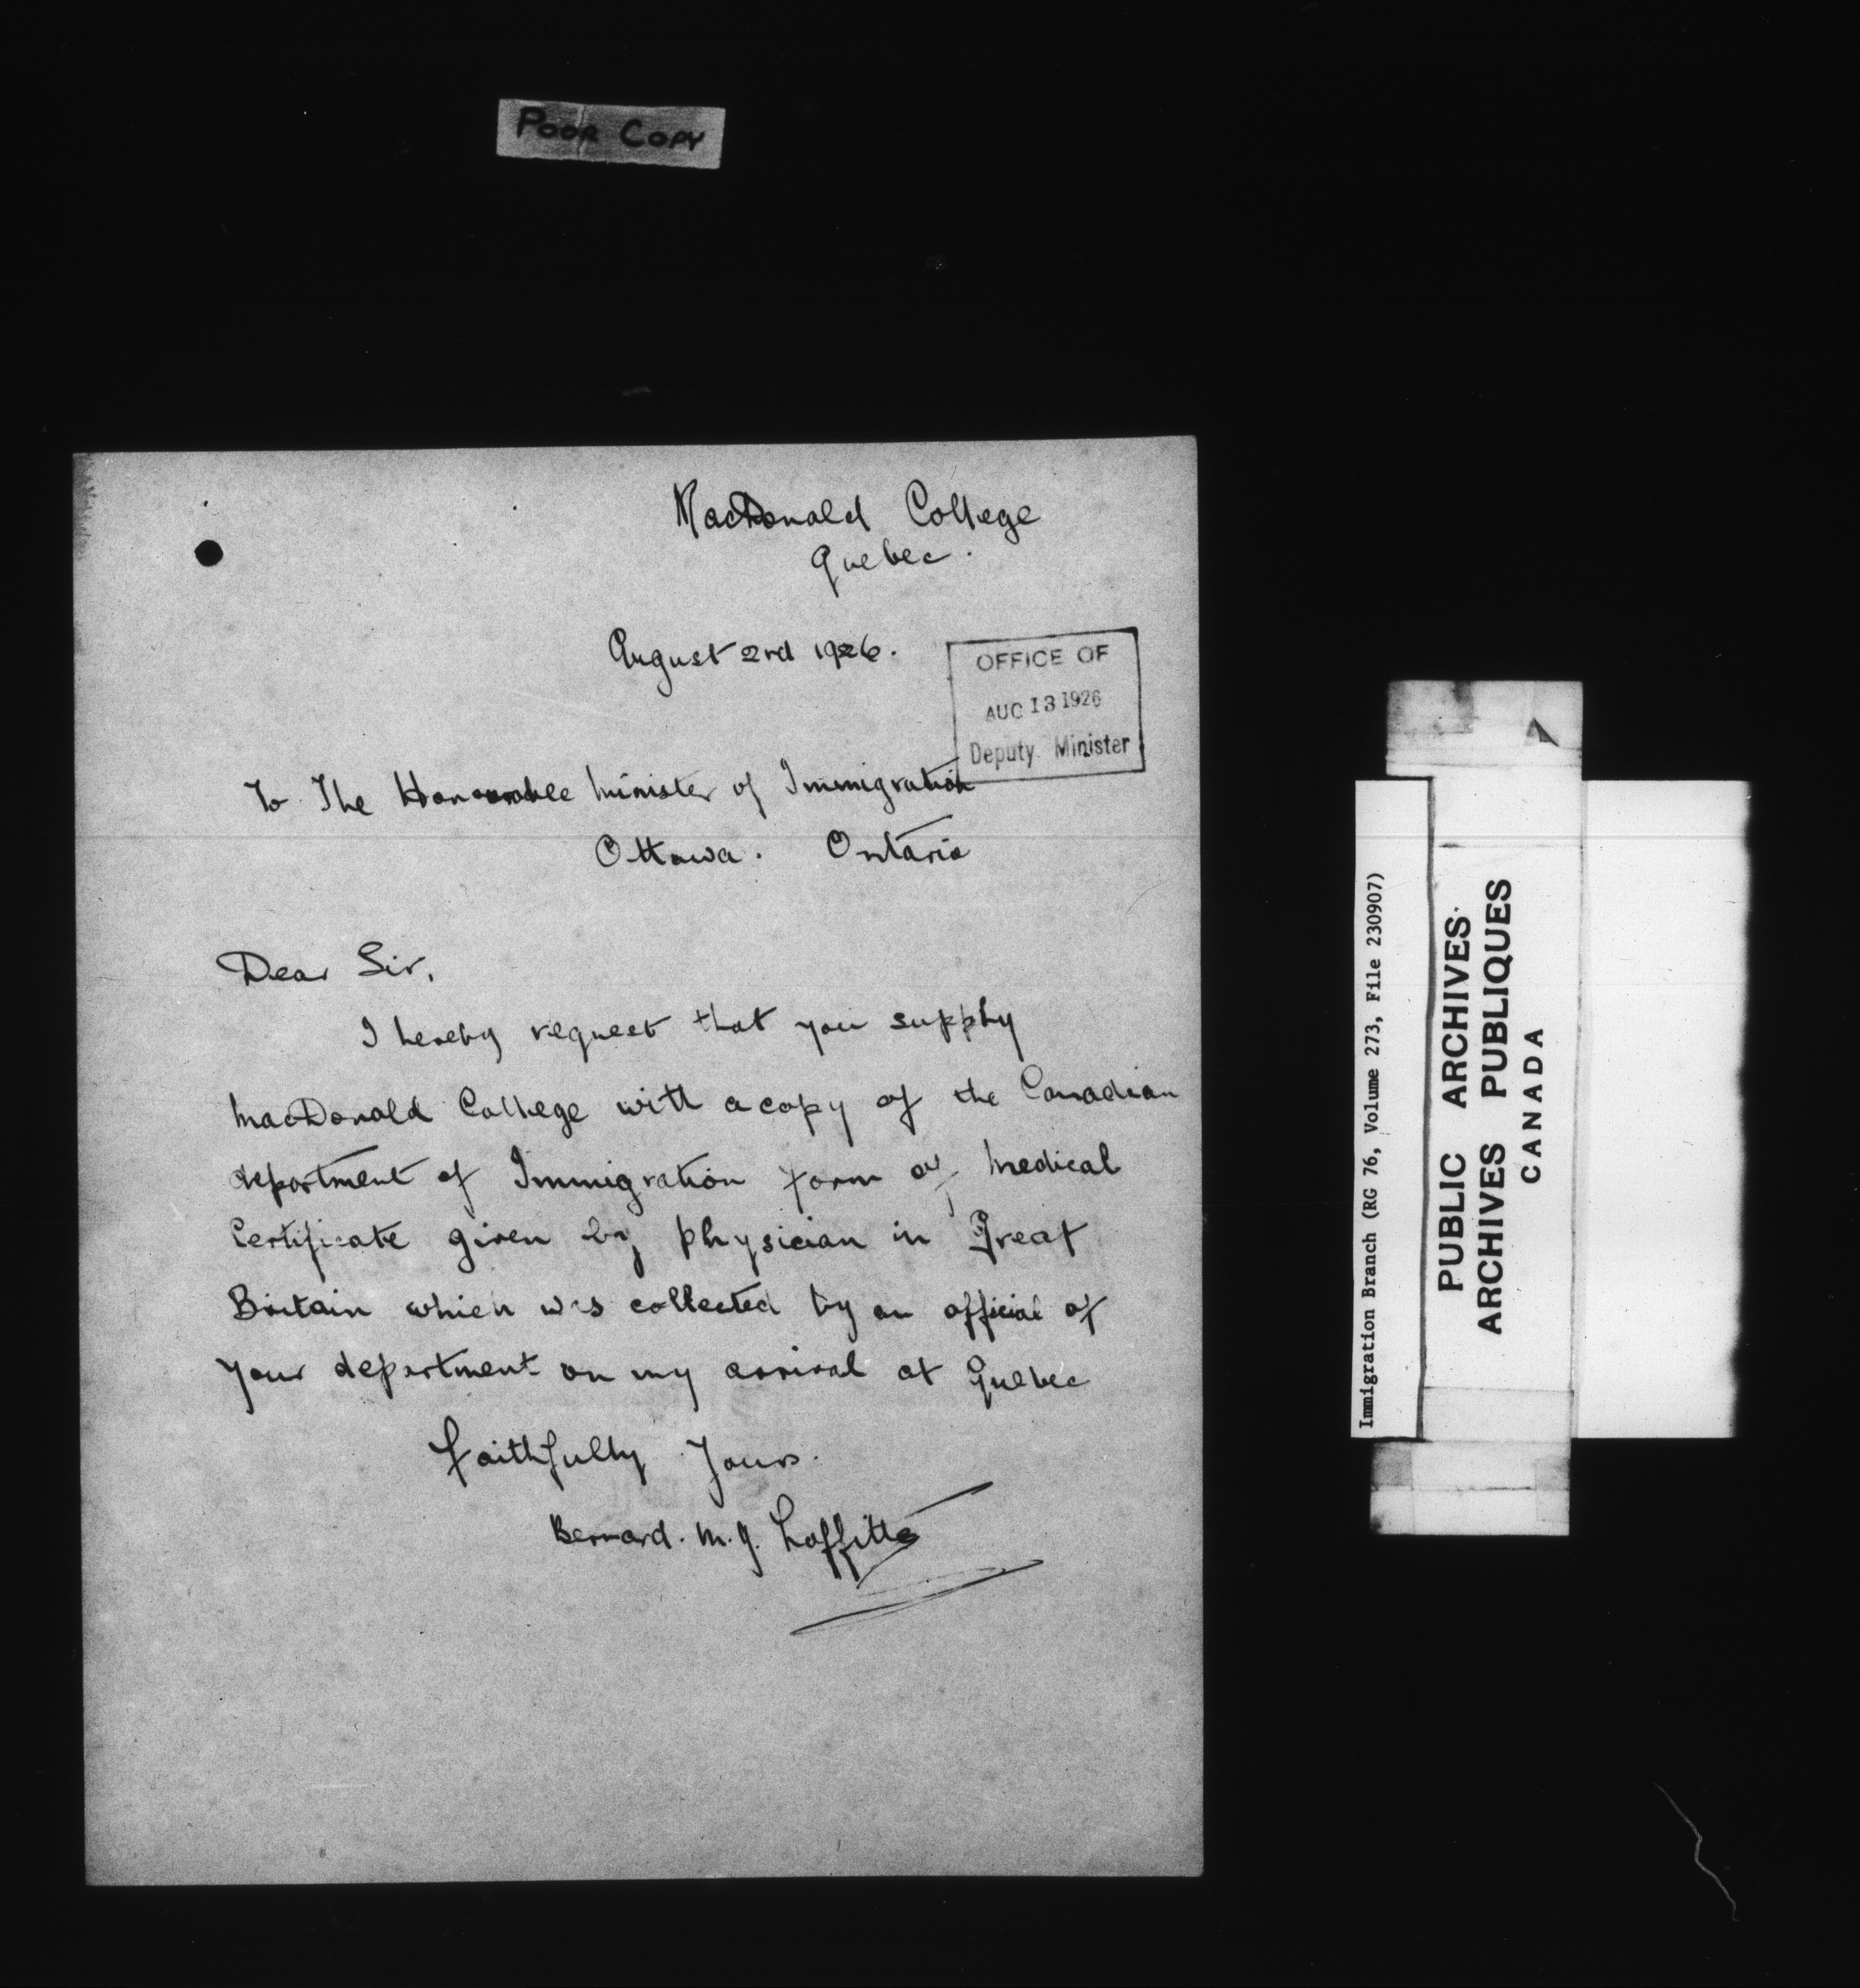 POOR COPY
MacDonald College
Quebec.
August 2nd 1926.
OFFICE OF
AUG 13 1926
Deputy Minister
To The Honourable Minister of Immigration
Ottawa. Ontario
Dear Sir,
I hereby request that you supply
MacDonald College with a copy of the Canadian
department of Immigration form of Medical
Certificate given by physician in Great
Britain which was collected by an official of
your department on my arrival at Quebec
Faithfully Yours.
Bernard. M. J. Laffitte
Immigration Branch (RG 76, Volume 273, File 230907)
PUBLIC ARCHIVES
ARCHIVES PUBLIQUES
CANADA